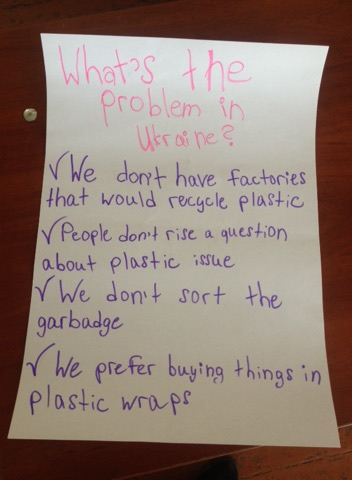 What's the
problem in
Ukraine?
✓We don't have factories
that would recycle plastic
✓People don't rise a question
about plastic issue
✓We don't sort the
garbadge
✓We prefer buying things in
plastic wraps